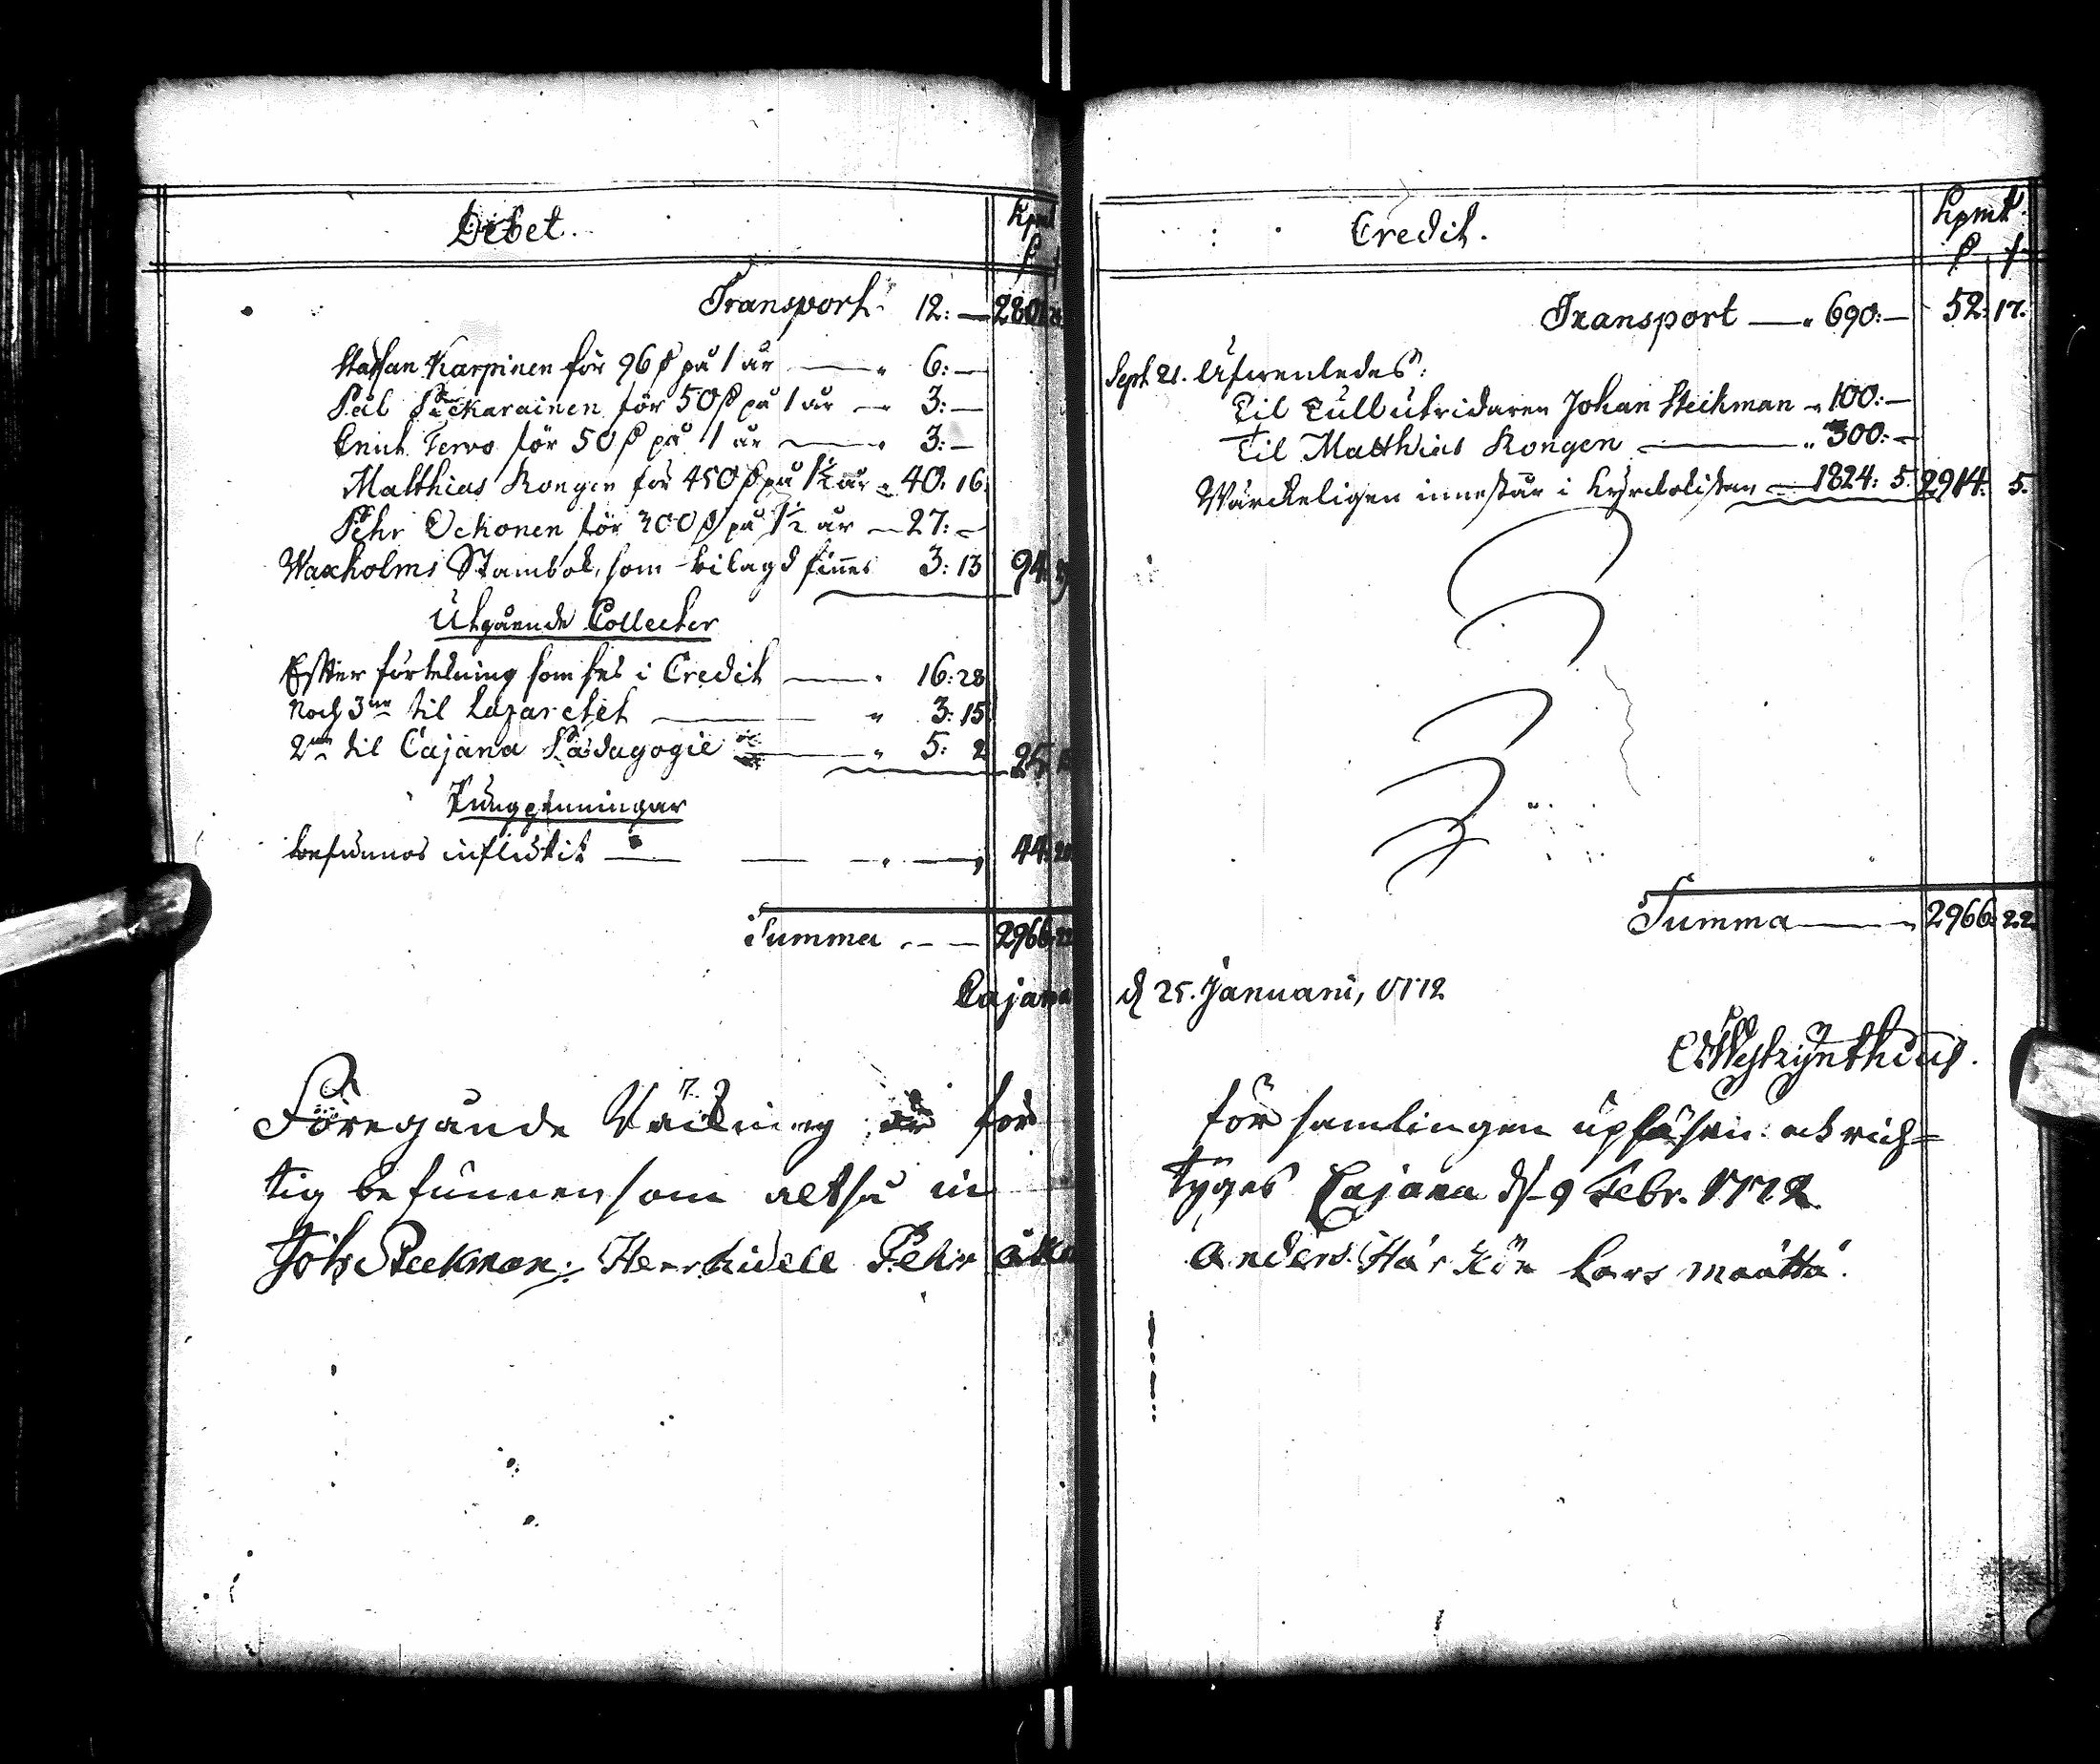 Debet.
Kpmt
Transport 12:— 280
Staffan Karpinen för 96 ꝑ på 1 år — 6:—
Pål Pickarainen för 50 ꝑ på 1 år — 3:—
Erich Tervo för 50 ꝑ på 1 år — 3:—
Matthias Kongen för 450 ꝑ på 1½ år — 40. 16.
Pehr Ockonen för 300 ꝑ på 1½ år — 27:—
Waxholms Stambok, som bilagd finnes 3: 13 94.
Utgående Collecter
Efter förtekning som ses i Credit — 16: 28
Noch 3ne til Lazarettet — 3: 15
2ne til Cajana Pædagogie — 5: 2 25
Pungpenningar
befunnos influtit — 44: 20
Summa — 2966: 22
Cajana
Föregående Räkning är för
tig befunnen som altså in
Joh Steekman: Herr Pehr
Credit.
Kpmt
Transport — 690:— 52: 17.
Sept 21. Utwenledes:
Til Tullutridaren Johan Steikman — 100:—
Til Matthias Kongen — 300:—
Wärckeligen innestår i Kyrckokistan — 1824: 5. 2914: 5.
Summa — 2966: 22.
d 25. Januarii, 1772
C Westzynthius.
församlingen upläsen: ock rich=
tyges Cajana d 9 Febr. 1772
Anders Härkön Lars määttä.